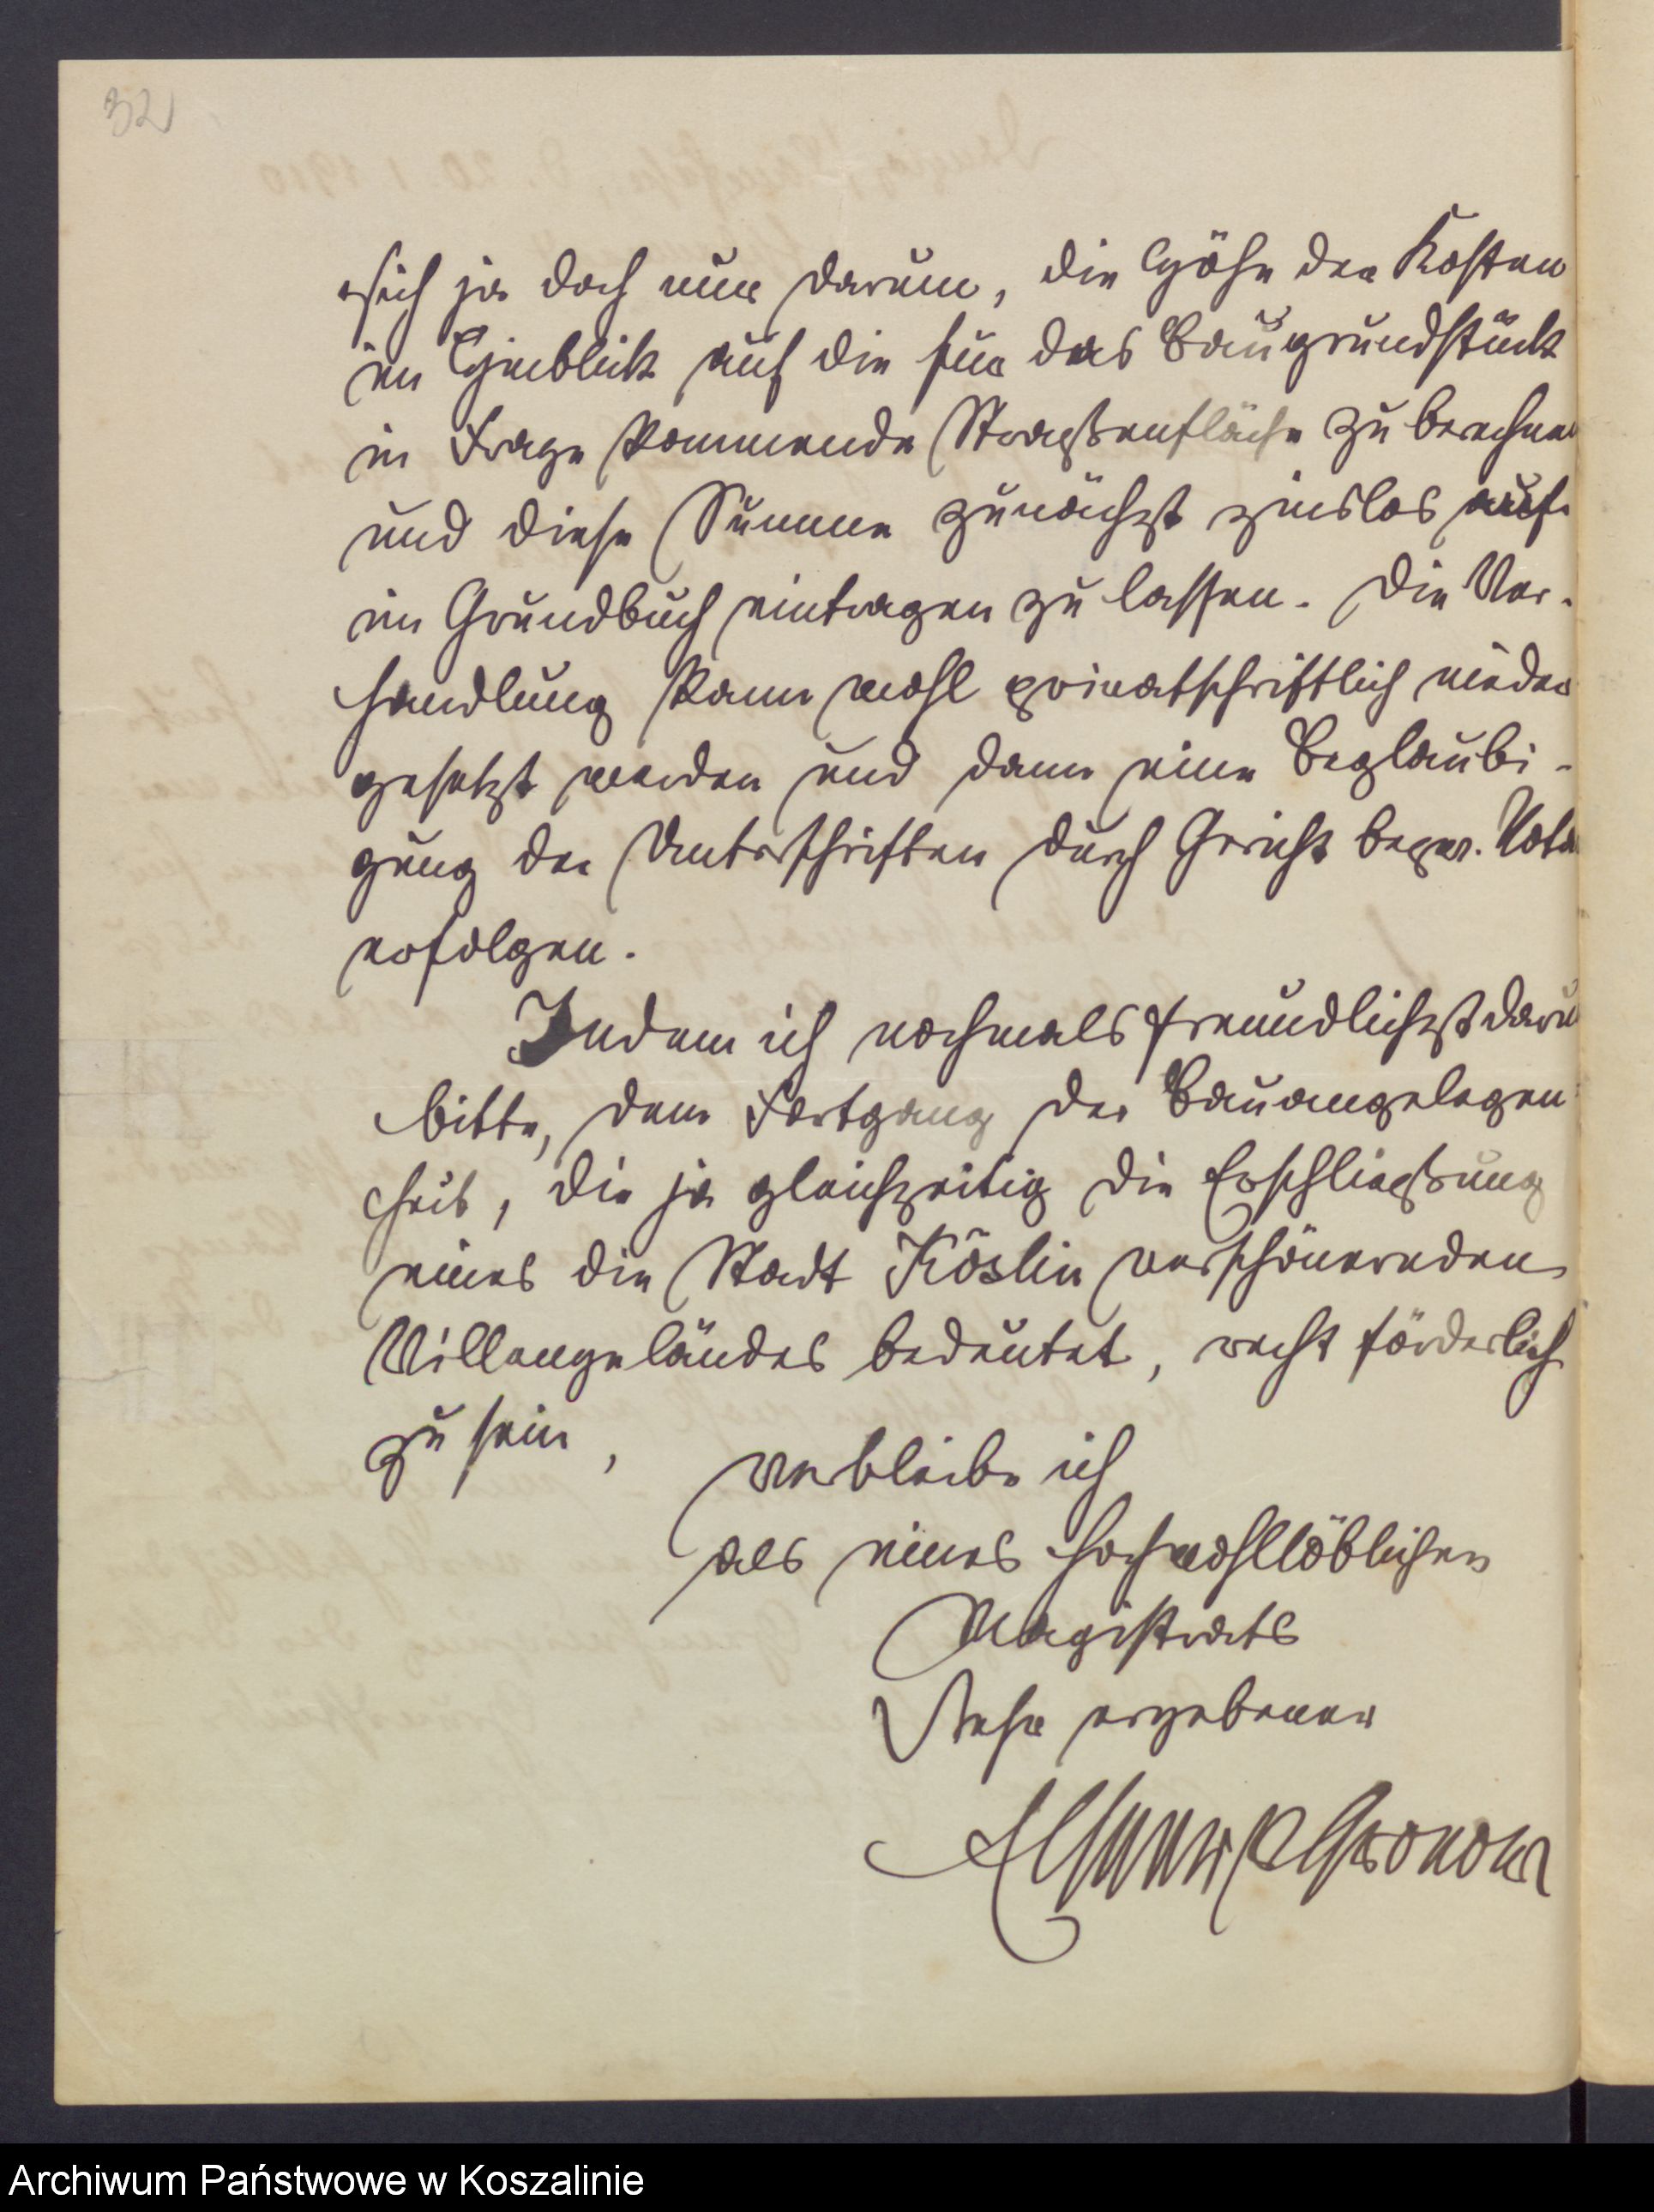 32
sich ja doch nur darum, die Höhe der Kosten
im Hinblick auf die für das Baugrundstück
in Frage kommende Straßenfläche zu berechnen
und diese Summe zunächst zinslos auf
im Grundbuch eintragen zu lassen. Die Ver-
handlung kann wohl privatschriftlich nieder
gesetzt werden und dann eine Beglaubi-
gung der Unterschriften durch Gericht bezw. Nota
erfolgen.
Indem ich nochmals freundlichst daru
bitte, dem Fortgang der Bauangelegen
heit, die ja gleichzeitig die Erschließung
eines die Stadt Köslin verschönernden
Villengeländes bedeutet, recht förderlich
zu sein,
verbleibe ich
als eines hochwohllöblichen
Magistrats
sehr ergebener
Archiwum Państwowe w Koszalinie